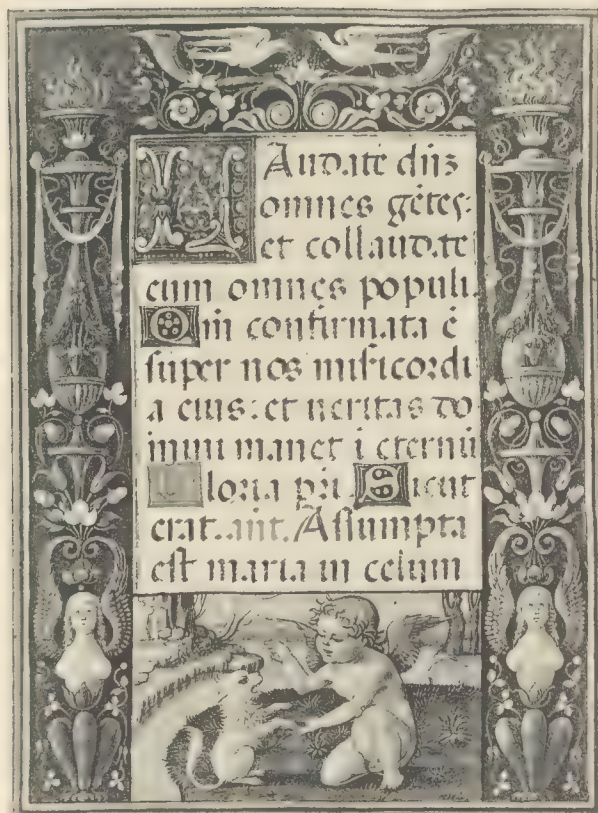 LAudate dn̄s
omnes gētes:
et collaudate
eum omnes populi.
Qm̄ confirmata ē
super nos misicordi
a eius: et ueritas do
mini manet ī eternū
Gloria pri Sicut
erat. ant. Assumpta
est maria in celum